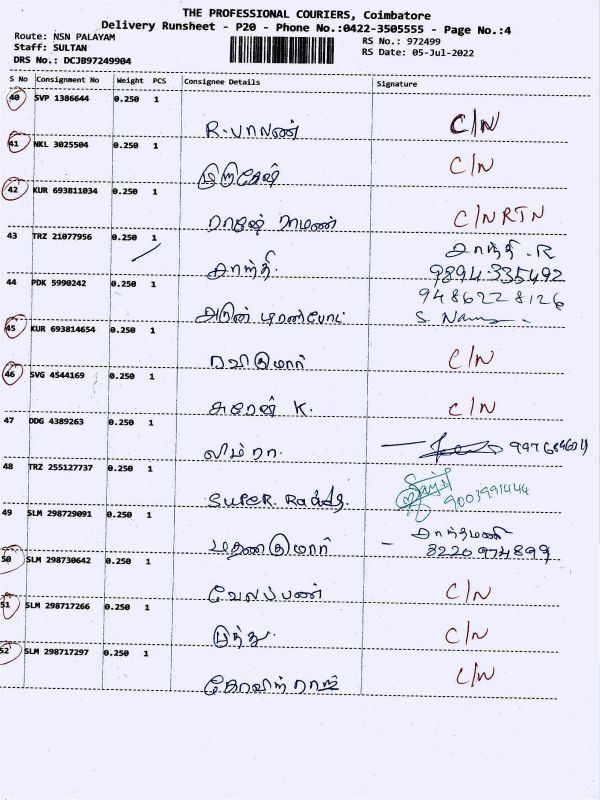 THE PROFESSIONAL COURIERS, Coimbatore
Delivery Runsheet - P20 - Phone No.:0422-3505555 - Page No.:4
Route: NSN PALAYAM
Staff: SULTAN
DRS No.: DCJB97249904
RS No.: 972499
RS Date: 05-Jul-2022
S No Consignment No Weight PCS Consignee Details Signature
40 SVP 1386644 0.250 1
R. பாலன் C/N
41 NKL 3025504 0.250 1
முருகேஷ் C/N
42 KUR 693811034 0.250 1
ராஜேஷ் C/N RTN
43 TRZ 21077956 0.250 1
கார்த்தி. R
சார்தி. 9894335492
44 PDK 5990242 0.250 1
9486228126
அருன் டிரான்போட் S.
45 KUR 693814654 0.250 1
ரவி குமார் C/N
46 SVG 4544169 0.250 1
சுரேன் K. C/N
47 DDG 4389263 0.250 1
லிம்ரா.
48 TRZ 255127737 0.250 1
SUPER 9003991444
49 SLM 298729091 0.250 1
மதன குமார் - 8220974899
50 SLM 298730642 0.250 1
வேலப்பன் C/N
51 SLM 298717266 0.250 1
முத்து. C/N
52 SLM 298717297 0.250 1
கோவிந் ராஜ் C/N